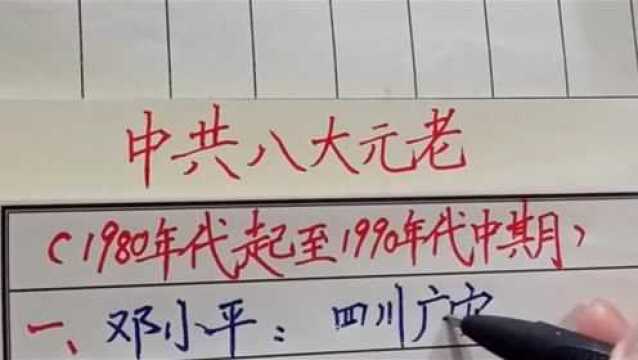 中共八大元老
(1980年代起至1990年代中期)
一、邓小平：四川广安